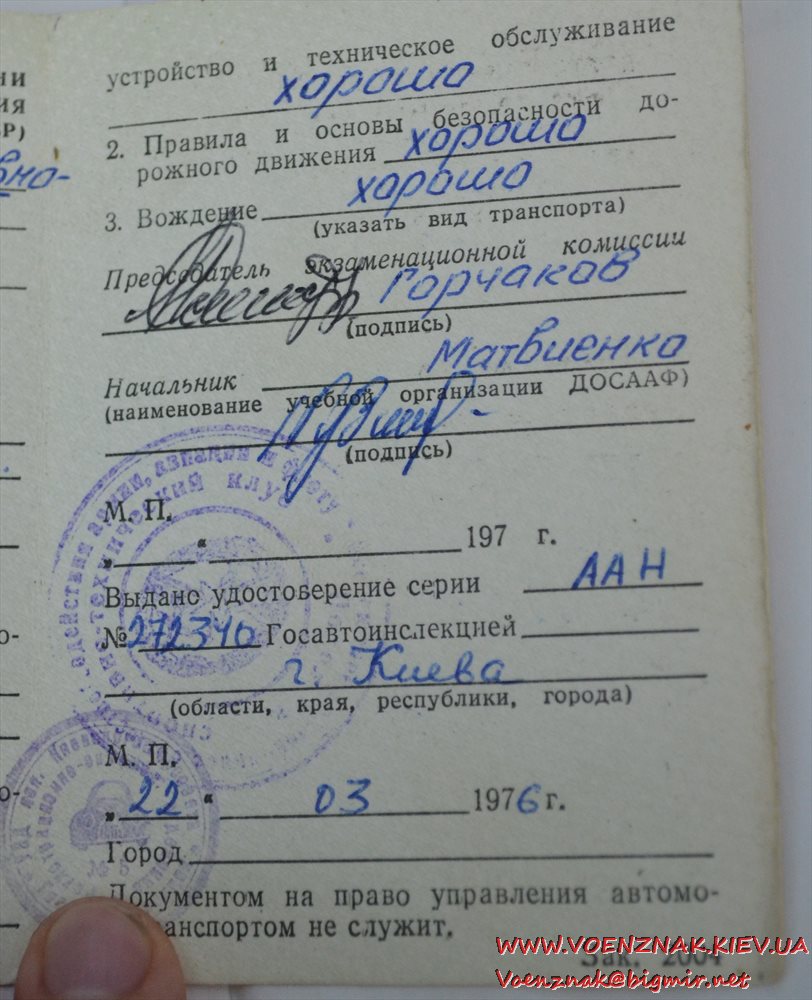 устройство и техническое обслуживание
хорошо
2. Правила и основы безопасности до-
рожного движения хорошо
хорошо
3. Вождение
(указать вид транспорта)
Председатель экзаменационной комиссии
Горчаков
(подпись)
Матвиенко
Начальник
(наименование учебной организации ДОСААФ)
(подпись)
М. П.
„ “ 197 г.
Выдано удостоверение серии ААН
№ 272340 Госавтоинспекцией
г. Киева
(области, края, республики, города)
М. П.
„ 22 “ 03 1976 г.
Город
Документом на право управления автомо-
транспортом не служит.
Зак. 2004
WWW.VOENZNAK.KIEV.UA
Voenznak@bigmir.net